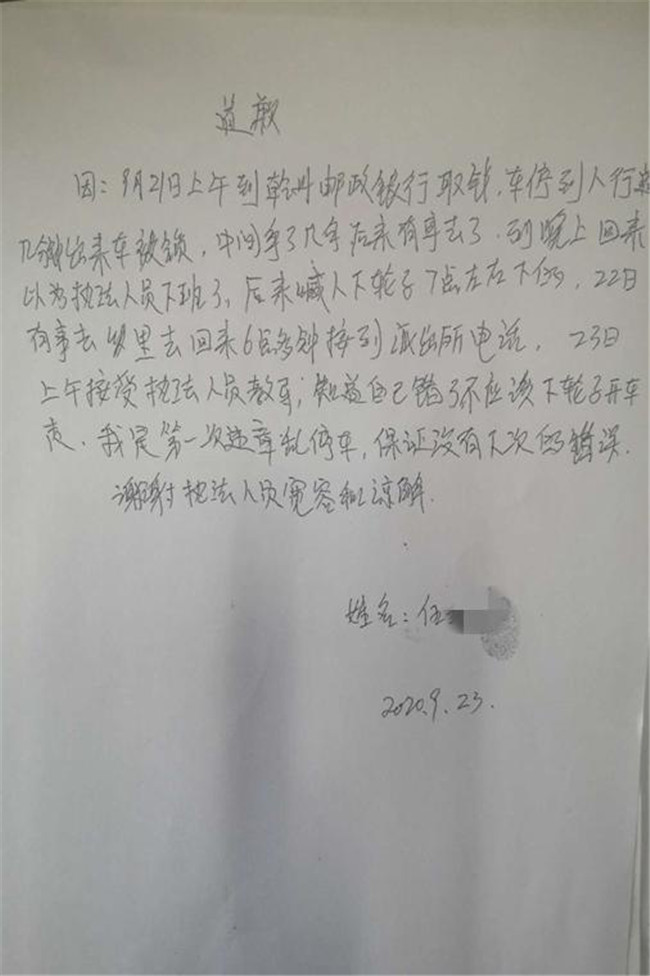 道歉
因：9月21日上午到乾州邮政银行取钱，车停到人行道
几分钟出来车被锁，中间等了几字后来有事去了．到晚上回来
以为执法人员下班了，后来喊人下轮子7点左右下的，22日
有事去 里去回来6点多钟接到派出所电话，23日
上午接受执法人员教育；知道自己错了不应该下轮子开车
走．我是第一次违章乱停车，保证没有下次的错误．
谢谢执法人员宽容和谅解．
姓名：任
2020.9.23.